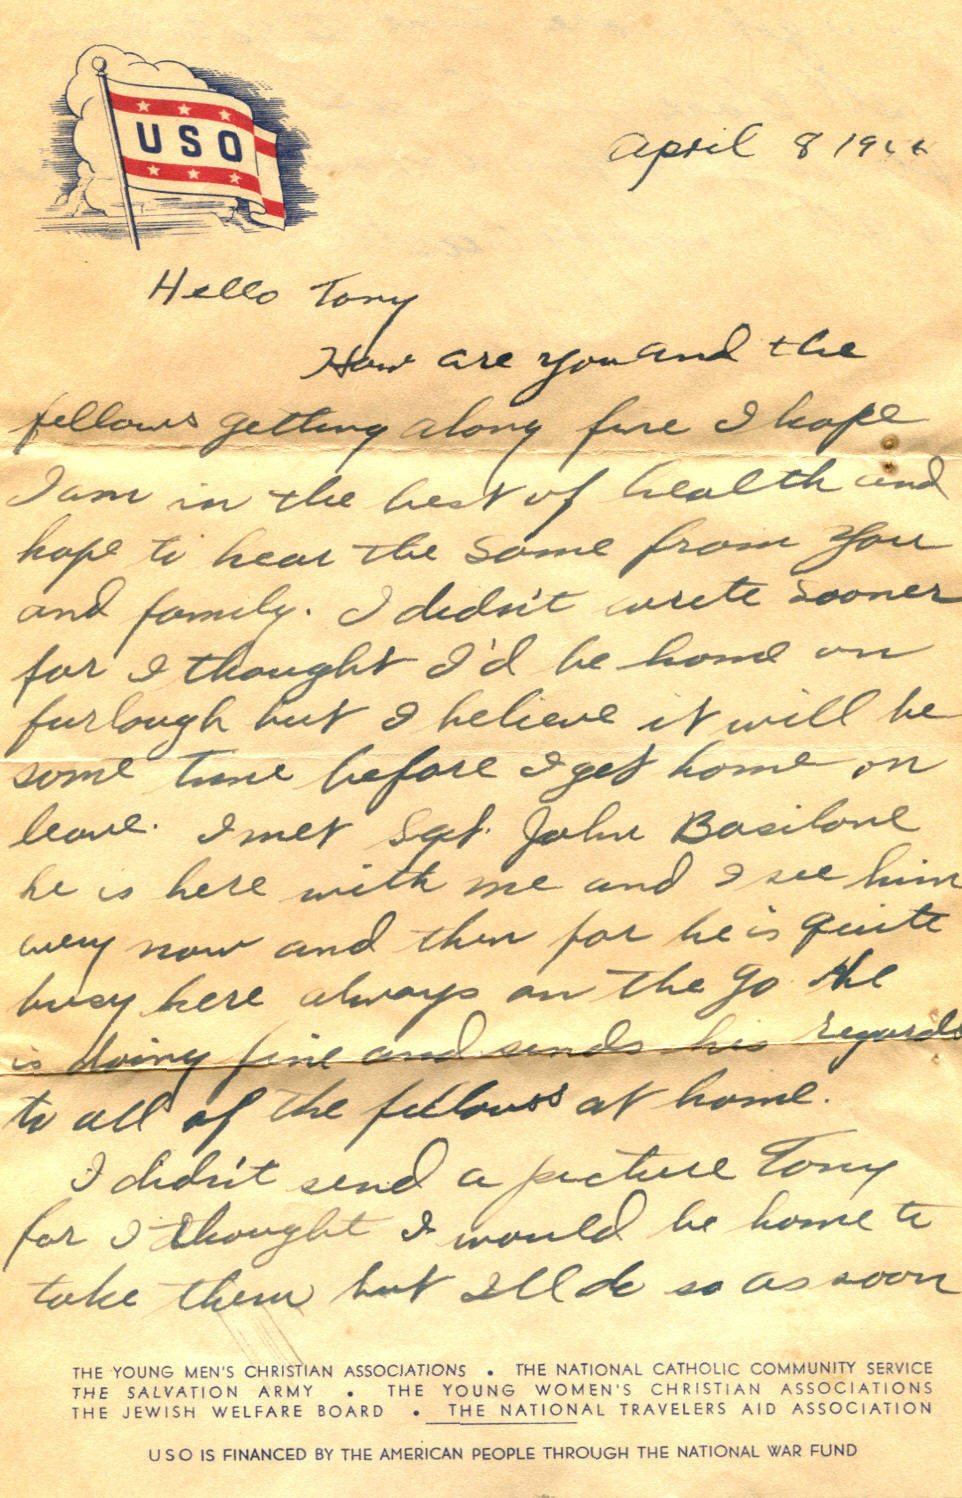 USO
April 8 19
Hello Tony
How are you and the
fellows getting along fine I hope
I am in the best of health and
hope to hear the same from you
and family. I didn't write sooner
for I thought I'd be home on
furlough but I believe it will be
some time before I get home on
leave. I met Sgt. John Basilone
he is here with me and I see him
every now and then for he is quite
busy here always on the go He
is doing fine and sends his regards
to all of the fellows at home.
I didn't send a picture Tony
for I thought I would be home to
take them but I'll do so as soon
THE YOUNG MEN'S CHRISTIAN ASSOCIATIONS • THE NATIONAL CATHOLIC COMMUNITY SERVICE
THE SALVATION ARMY • THE YOUNG WOMEN'S CHRISTIAN ASSOCIATIONS
THE JEWISH WELFARE BOARD • THE NATIONAL TRAVELERS AID ASSOCIATION
USO IS FINANCED BY THE AMERICAN PEOPLE THROUGH THE NATIONAL WAR FUND